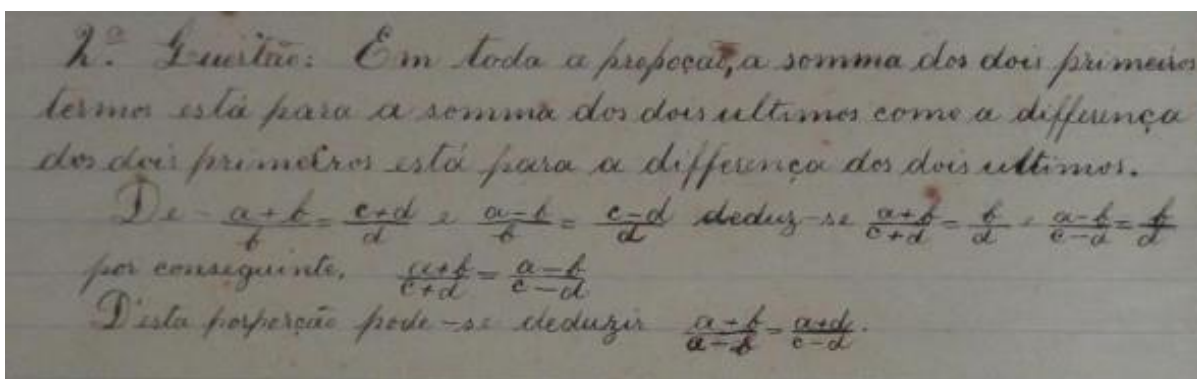 2.ª Questão: Em toda a propoçaõ, a somma dos dois primeiros
termos está para a somma dos dois ultimos como a differença
dos dois primeiros está para a differença dos dois ultimos.
De - \frac{a+b}{b} = \frac{c+d}{d} e \frac{a-b}{b} = \frac{c-d}{d} deduz-se \frac{a+b}{c+d} = \frac{b}{d} e \frac{a-b}{c-d} = \frac{b}{d}
por conseguinte, \frac{a+b}{c+d} = \frac{a-b}{c-d}
D'esta porporção pode-se deduzir \frac{a+b}{a-b} = \frac{a+d}{c-d}.